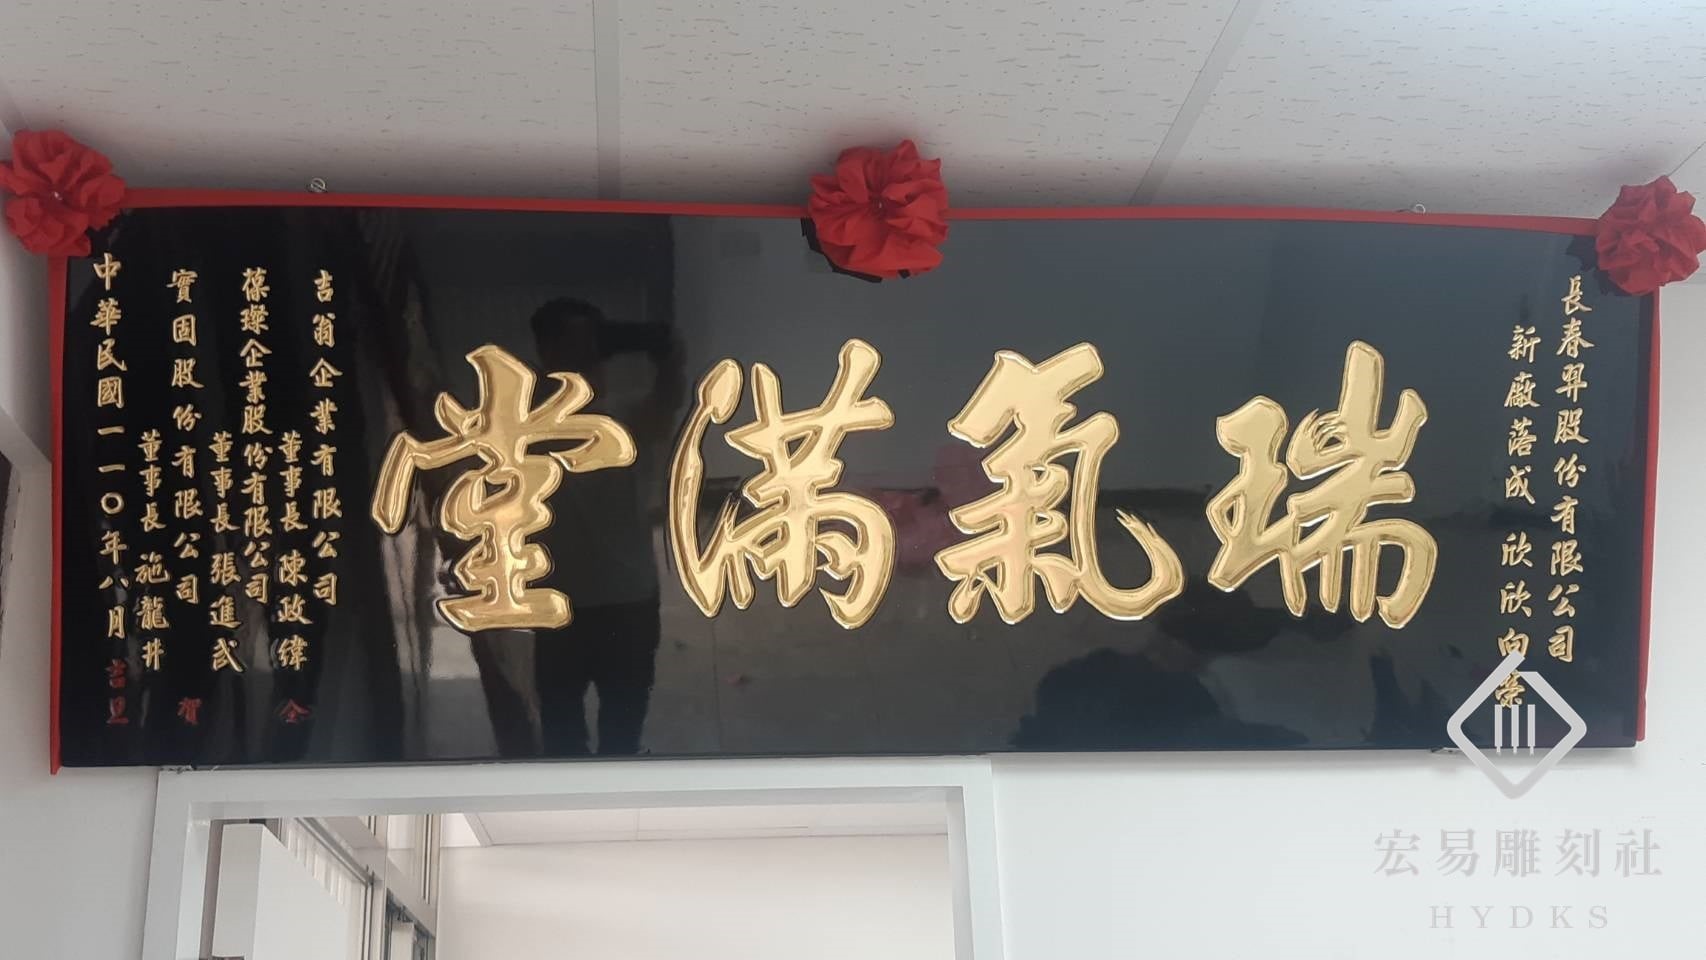 長春羿股份有限公司
新廠落成 欣欣向榮
瑞氣滿堂
吉翁企業有限公司
董事長 陳政緯 仝
葆璨企業股份有限公司
董事長 張進武
實固股份有限公司 賀
董事長 施龍井
中華民國一一〇年八月 吉旦
宏易雕刻社
HYDKS